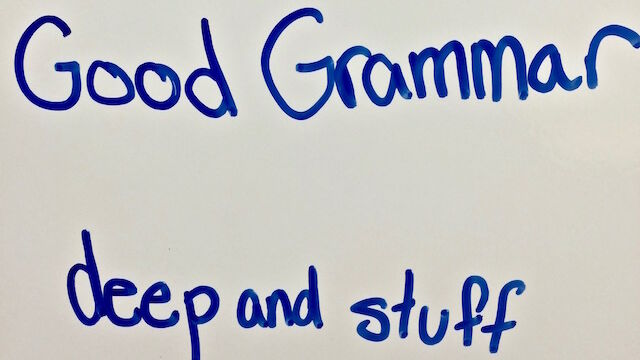 Good Grammar
deep and stuff